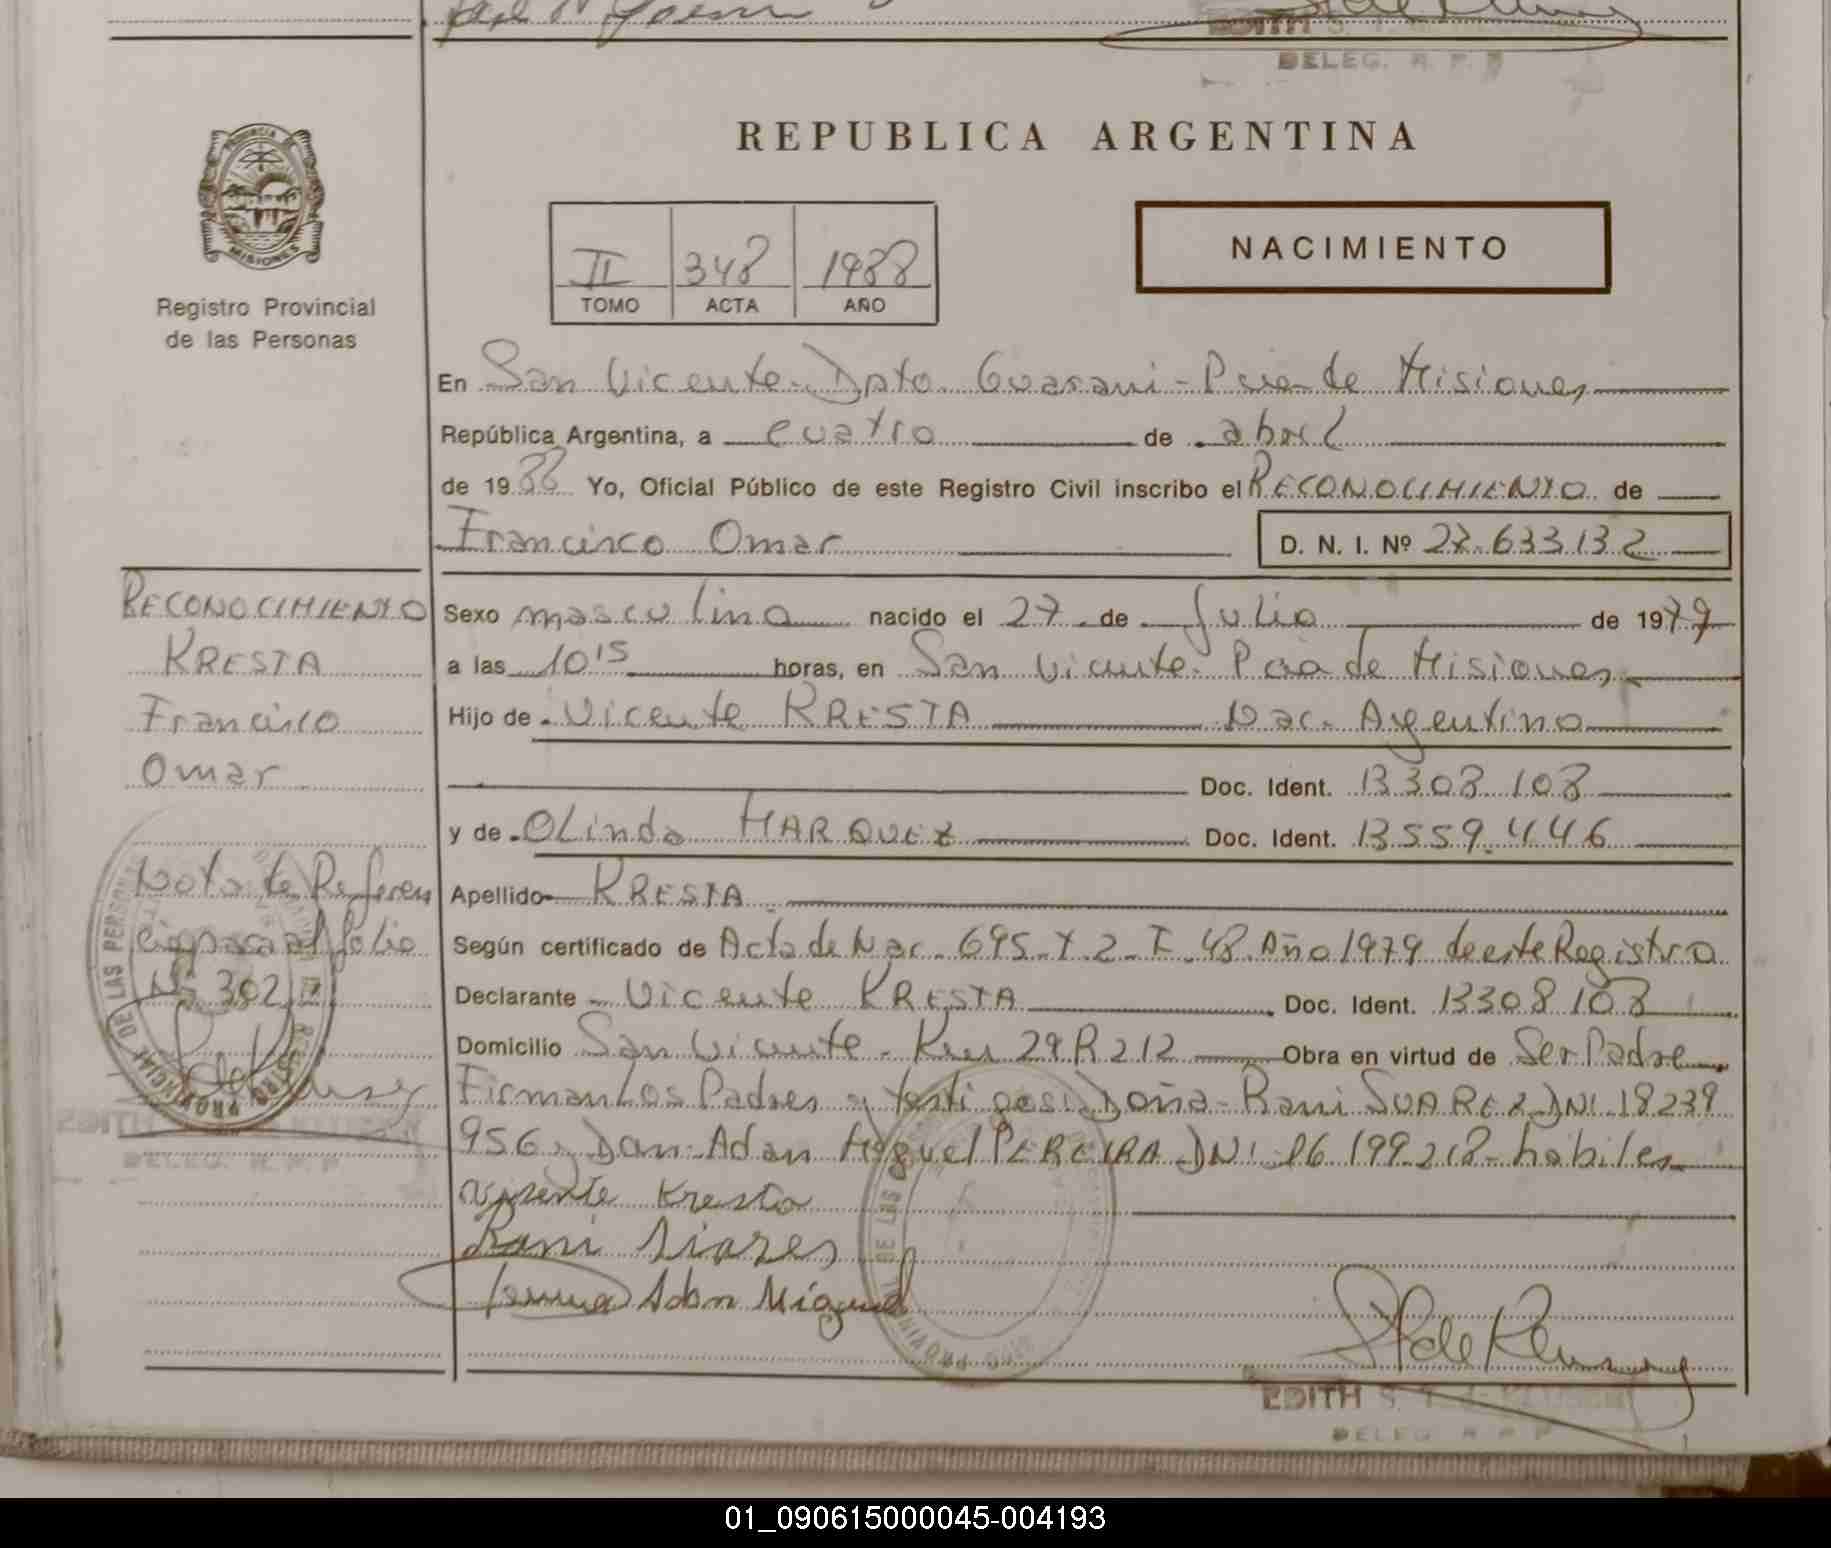 EDITH S.
DELEG. R. P. P
REPUBLICA ARGENTINA
PROVINCIA DE
MISIONES
Registro Provincial
de las Personas
II 348 1988
TOMO ACTA AÑO
NACIMIENTO
En San Vicente - Dpto. Guarani - Pcia de Misiones
República Argentina, a cuatro de abril
de 1988 Yo, Oficial Público de este Registro Civil inscribo el RECONOCIMIENTO de
Francisco Omar D. N. I. Nº 27.633.132
RECONOCIMIENTO
KRESTA
Francisco
Omar
Nota de Referen
cia pasa al folio
Nº 302
Sexo masculino nacido el 27 de Julio de 1979
a las 10 15 horas, en San Vicente - Pcia de Misiones
Hijo de Vicente KRESTA Nac. Argentino
Doc. Ident. 13308 108
y de Olinda MARQUEZ Doc. Ident. 13559.446
Apellido KRESTA
Según certificado de Acta de Nac. 695 - T. 2 - F. 48. Año 1979 de este Registro
Declarante Vicente KRESTA Doc. Ident. 13308 108
Domicilio San Vicente - Km 29 R 212 Obra en virtud de Ser Padre
Firman Los Padres y testigos: Doña Rani SUAREZ DNI. 18239
956 y Don Adan Miguel PEREIRA DNI. 16 199 218 habiles
Visente Kresta
Rani Siares
Adan Miguel
EDITH S. T. d
DELEG. R P P
REGISTRO PROVINCIAL DE LAS PERSONAS
DELEG. R. P. P
01_090615000045-004193